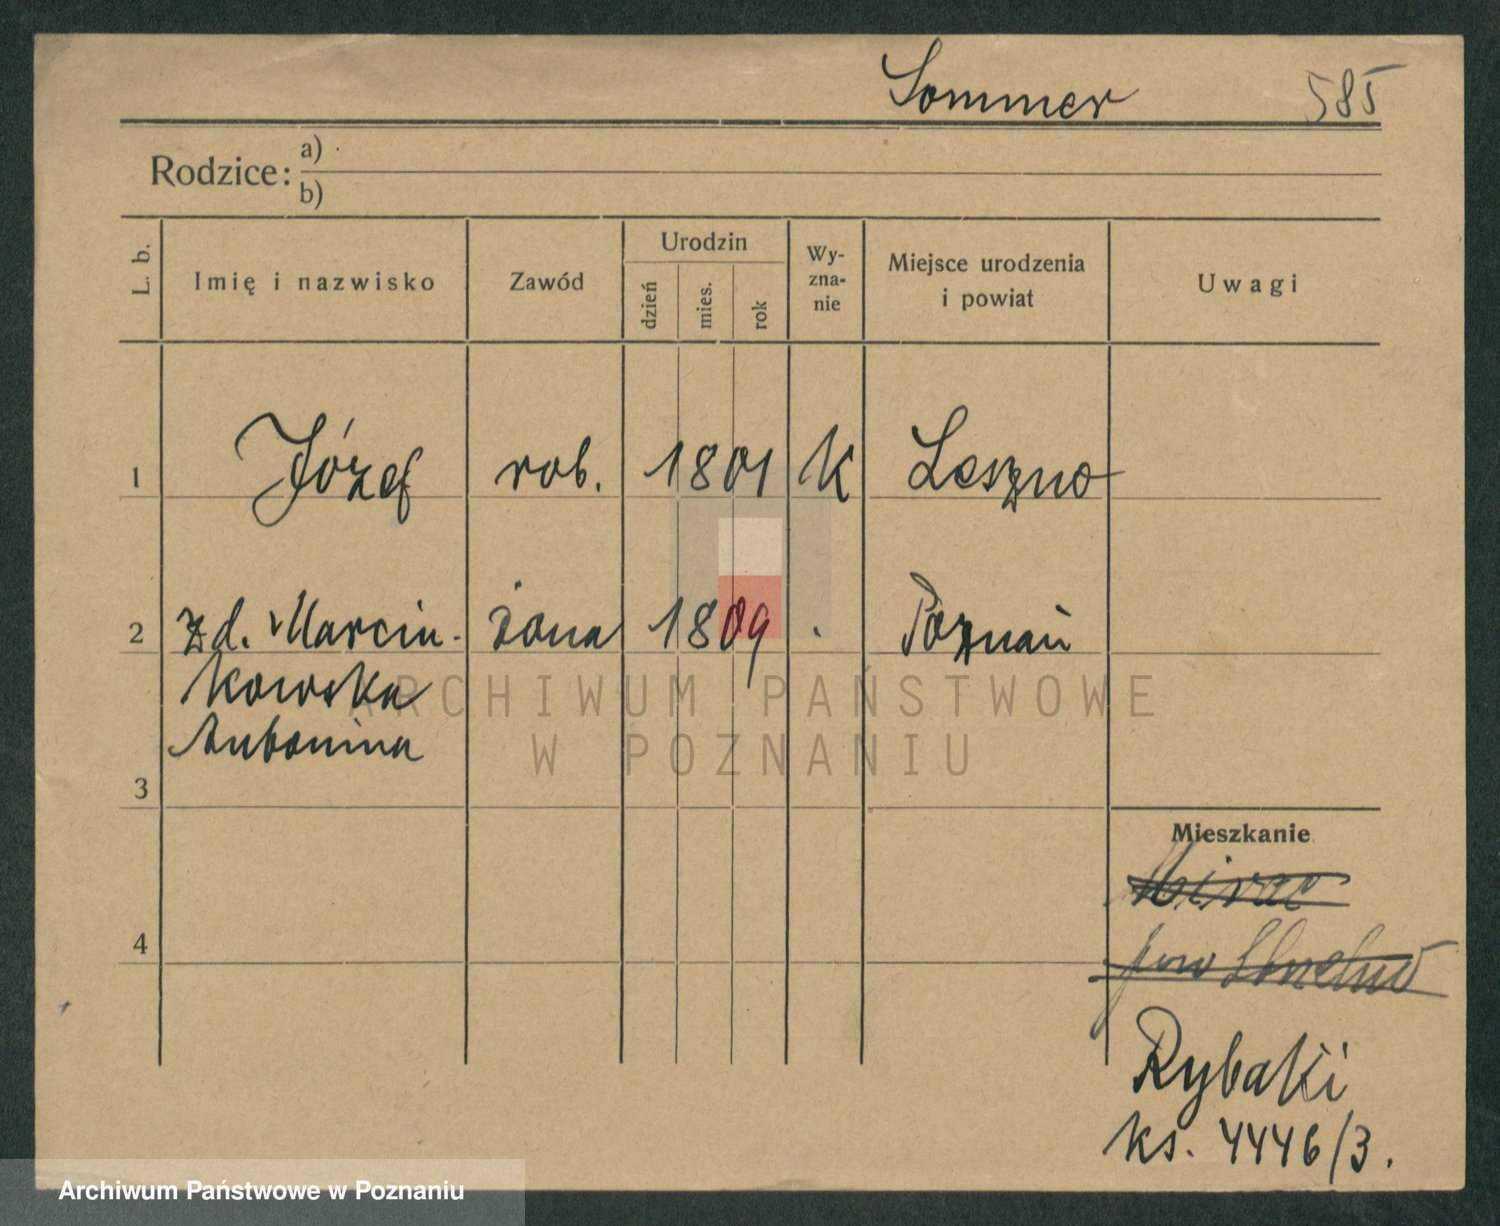 Sommer 585
Rodzice: a)
b)
L. b. Imię i nazwisko Zawód Urodzin dzień mies. rok Wy-zna-nie Miejsce urodzenia i powiat Uwagi
1 Józef rob. 1801 K Leszno
2 zd. Marcin- żona 1809 . Poznań
kowska
Antonina
3
4
Mieszkanie
pow
Rybaki
ks. 4446/3.
ARCHIWUM PAŃSTWOWE
W POZNANIU
Archiwum Państwowe w Poznaniu